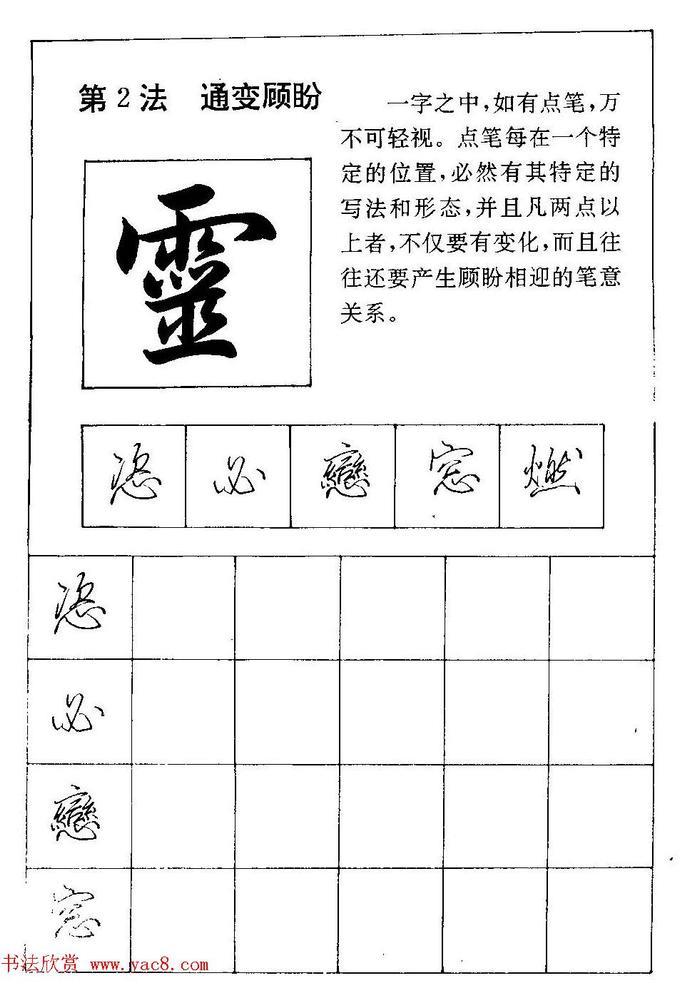 第2法 通变顾盼
一字之中,如有点笔,万
不可轻视。点笔每在一个特
定的位置,必然有其特定的
写法和形态,并且凡两点以
上者,不仅要有变化,而且往
往还要产生顾盼相迎的笔意
关系。
靈
必 戀 窓 燃
必
戀
窓
书法欣赏 www.yac8.com